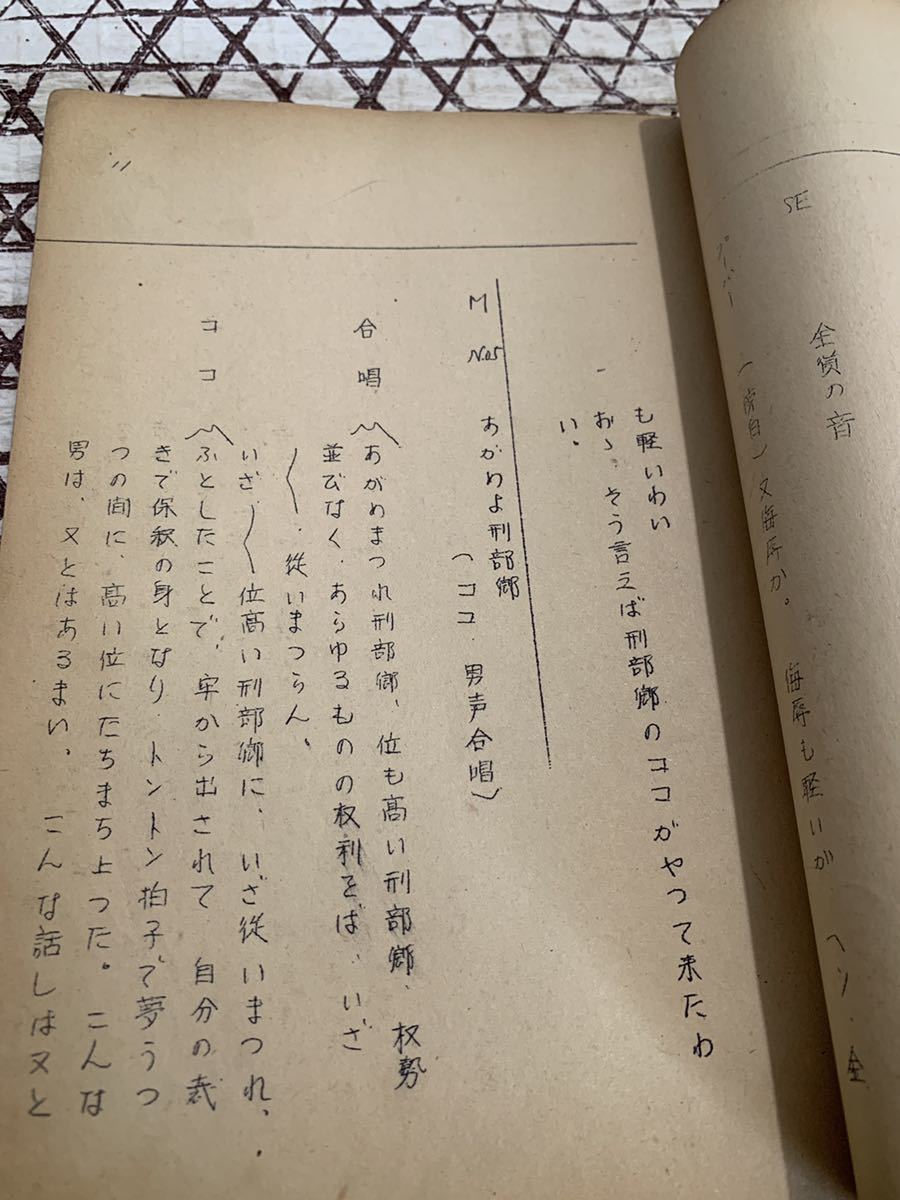 SE 金貨の音
プーバー (傍白) 又侮辱か。 侮辱も軽いが
も軽いわい
おゝ、そう言えば刑部郷のココがやつて来たわ
い。
M No5 あがめよ刑部郷
(ココ 男声合唱)
合唱 〽あがめまつれ刑部郷、位も高い刑部郷、权勢
並びなく、あらゆるものの权利をば、いざ
〳〵、従いまつらん、
いざ〳〵位高い刑部郷に、いざ従いまつれ、
ココ 〽ふとしたことで、牢から出されて 自分の裁
きで保釈の身となり トントン拍子で夢うつ
つの間に、高い位にたちまち上つた。こんな
男は、又とはあるまい、 こんな話しは又と
11